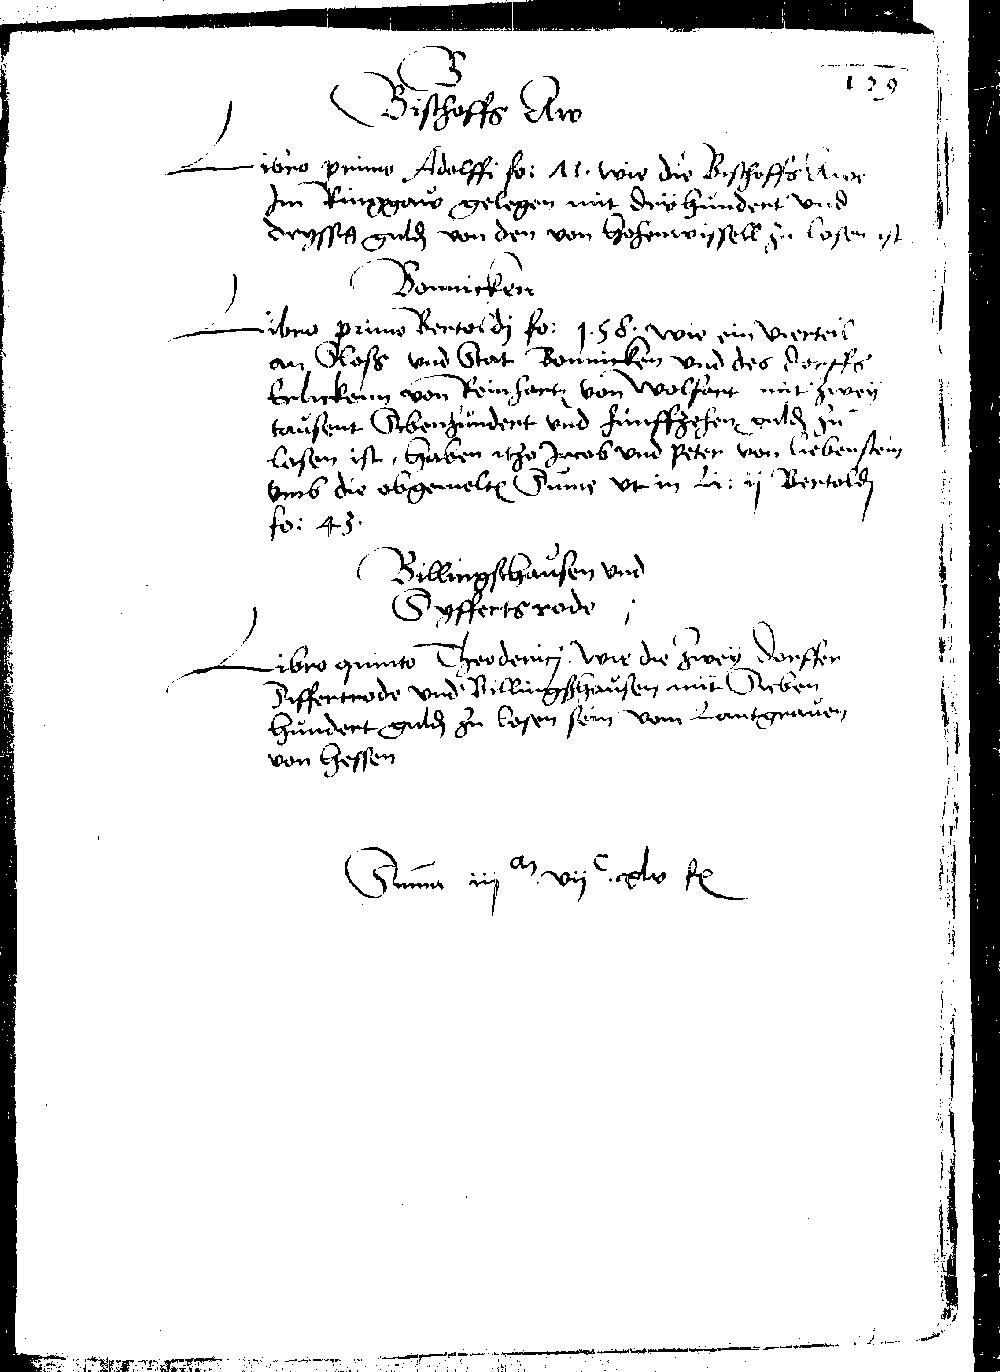 139
B
Bischoffs Aw
Libro primo Adolffi fo: 41. wie die Bischoffs Awe
Im Ringgaw gelegen mit dryhundert vnd
dryssig guld von den von Hohenwissell zu losen ist
Bonnicken
Libro primo Bertoldj fo: 158. wie ein vierteil
an Sloss vnd Stat Bonnicken vnd des dorffs
von Reinhartz von Wolfart mit zwey
tausent Sebenhundert vnd funffzehen guld zu
losen ist, haben itzo Jacob vnd Peter von liebenstein
vmb die obgemelte Sume vt in Li: ij Bertoldj
fo: 43.
Billingshausen vnd
Syffertsrode
Libro quinto Theoderici. wie die zwey dorffer
Siffertrode vnd Billingshausen mit Sieben
hundert guld zu losen sein vom Lantgrauen
von Hessen
Suma iij m vij c xlv fl